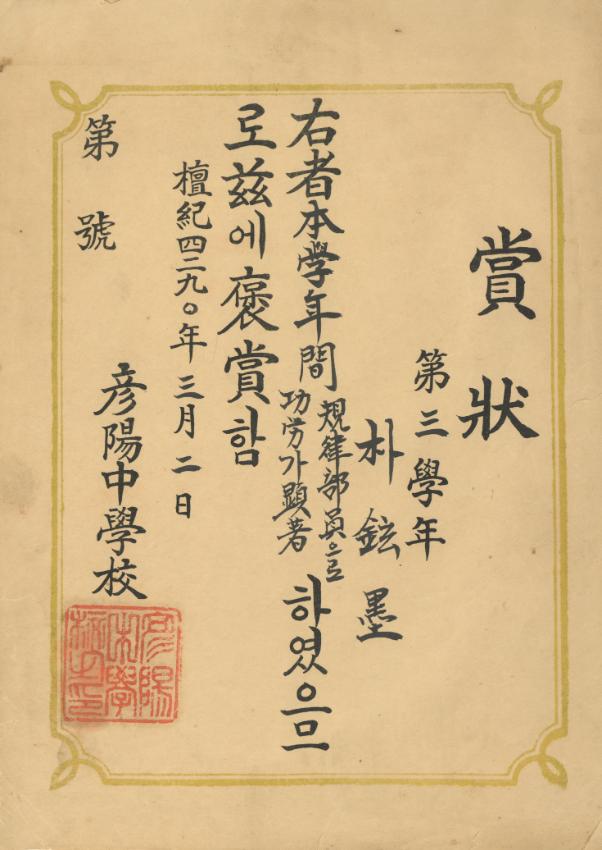 賞狀
第三學年
朴鉉墨
右者本学年間規律部員으로
功労가顯著하였으므
로玆에褒賞함
檀紀四二九〇年三月二日
彦陽中學校
第 號